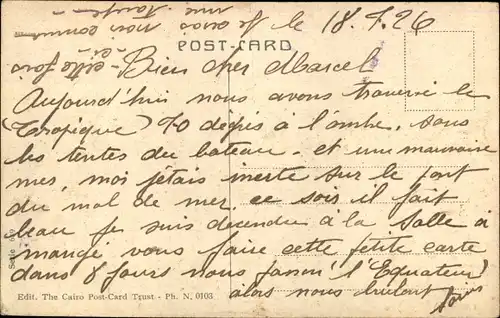 le 18.7.26
POST-CARD
Bien cher Marcel
Aujourd'hui nous avons traversé le
(Tropique) 70 degrés à l'ombre. sous
les tentes du bateau. et une mauvaise
mer, moi j'étais inerte sur le pont
du mal de mer. ce soir il fait
beau je suis descendu à la Salle à
mangé vous faire cette petite carte
dans 8 jours nous passon (l'Equateur)
alors nous
cette fois
Edit. The Cairo Post-Card Trust - Ph. N. 0103
Serie